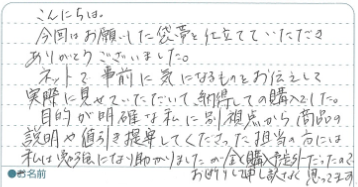 こんにちは。
今回はお願いした袋帯を仕立てていただき
ありがとうございました。
ネットで事前に気になるものをお伝えして
実際に見せていただいて、納得しての購入でした。
目的が明確な私に別視点から商品の
説明や値引き提案してくださった担当の方には
私は勉強になり助かりましたが購入予定外だったので
お断りし申し訳なく思ってます
●お名前